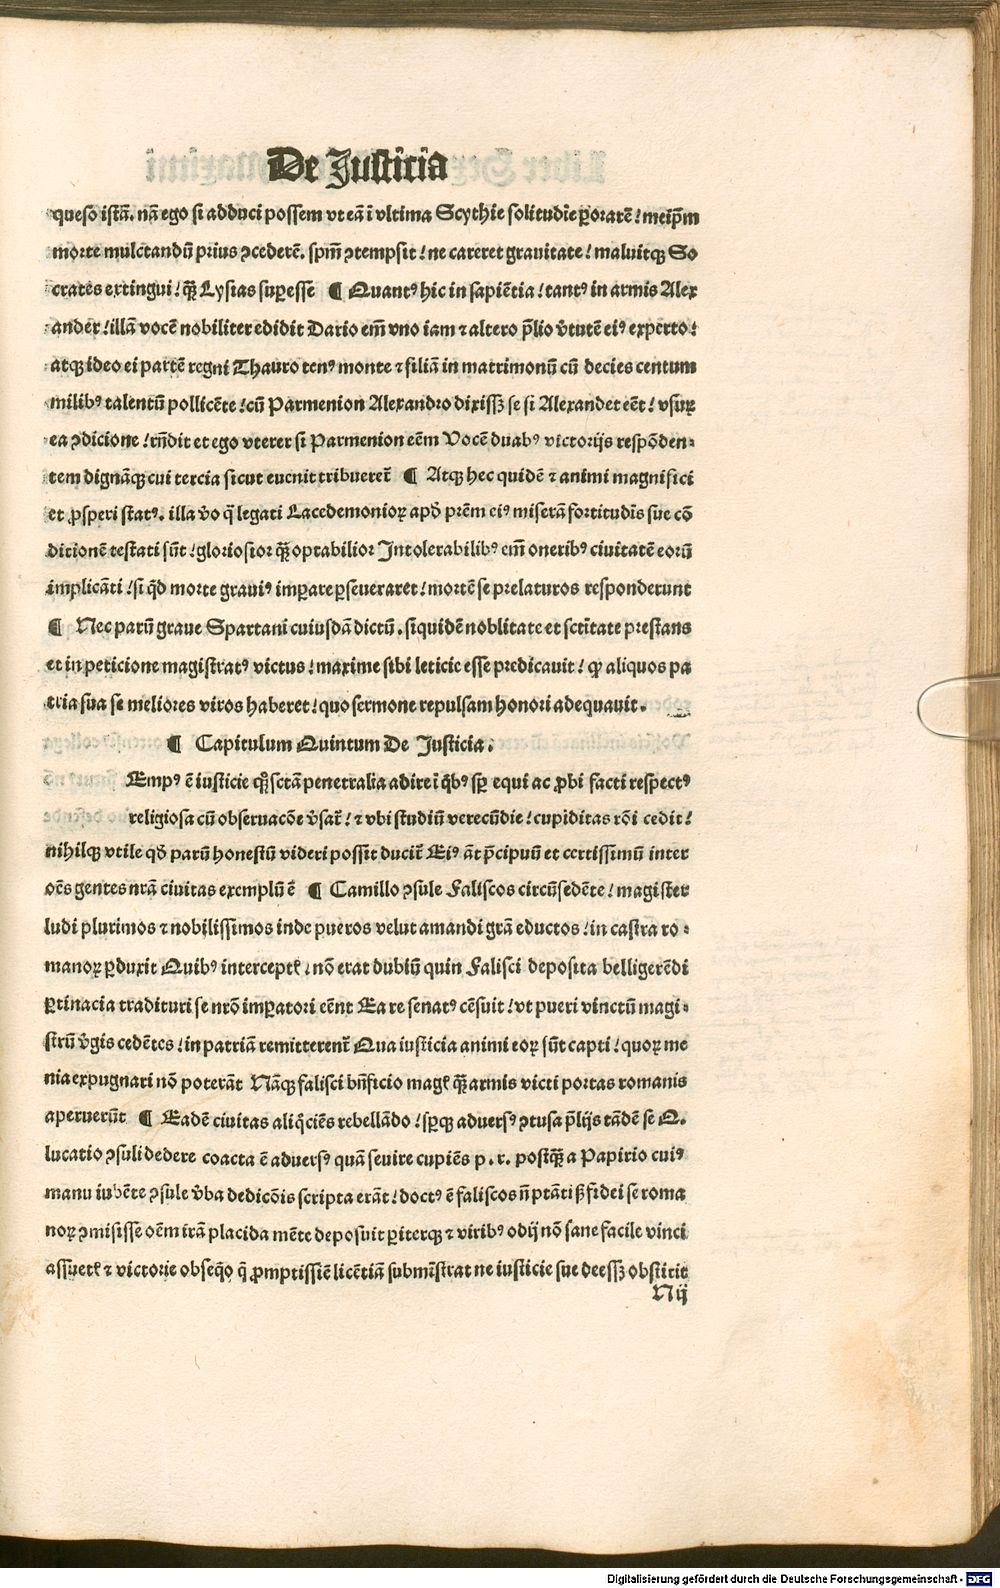 De Justicia
queso istā. nā ego si adduci possem vt eā ī vltima Scythie solitudīe ꝑorarē! meip̄m
morte mulctandū prius ꝯcederē. sp̄m̄ ꝯtempsit! ne careret grauitate! maluitqꝫ So
crates extingui! qꝫ̄ Lysias suꝑesse ¶ Quantꝰ hic in sapiētia! tantꝰ in armis Alex
ander! illā vocē nobiliter edidit Dario em̄ vno iam ⁊ altero p̄lio v̓tutē eiꝰ experto!
atqꝫ ideo ei partē regni Thauro tenꝰ monte ⁊ filiā in matrimonū cū decies centum
milibꝰ talentū pollicēte! cū Parmenion Alexandro dixissꝫ se si Alexander eēt! vsuꝝ
ea ꝯdicione! rn̄dit et ego vterer si Parmenion eēm Vocē duabꝰ victorijs respōden⸗
tem dignāqꝫ cui tercia sicut euenit tribueret̄ ¶ Atqꝫ hec quidē ⁊ animi magnifici
et ꝓsperi statꝰ. illa v̓o q̄ legati Lacedemonioꝝ apd̓ pr̄em eiꝰ miserā fortitudīs sue cō
ditionē testati sūt! gloriosior qꝫ̄ optabilior Intolerabilibꝰ em̄ oneribꝰ ciuitatē eorū
implicāti! si qd̓ morte grauiꝰ imꝑare ꝑseueraret! mortē se prelaturos responderunt
¶ Nec parū graue Spartani cuiusdā dictū. siquidē noblitate et sctitate prestans
et in peticione magistratꝰ victus! maxime sibi leticie esse predicauit! ꝙ aliquos pa
tria sua se meliores viros haberet! quo sermone repulsam honori adequauit.
¶ Capitulum Quintum De Justicia.
Empꝰ ē iusticie qꝫ̄ sctā penetralia adire! ī qb̓ꝰ sꝑ equi ac ꝓbi facti respectꝰ
religiosa cū obseruacōe v̓sat̄! ⁊ vbi studiū verecūdie! cupiditas rōi cedit!
nihilqꝫ vtile qd̓ parū honestū videri possit ducit̄ Eiꝰ āt p̄cipuū et certissimū inter
oēs gentes nrā ciuitas exemplū ē ¶ Camillo ꝯsule Faliscos circūsedēte! magister
ludi plurimos ⁊ nobilissimos inde pueros velut amandi grā eductos! in castra ro⸗
manoꝝ ꝑduxit Quibꝰ interceptꝭ. nō erat dubiū quin Falisci deposita belligerēdi
ꝑtinacia tradituri se nrō imꝑatori eēnt Ea re senatꝰ cēsuit! vt pueri vinctū magi⸗
strū v̓gis cedētes! in patriā remitterent̄ Qua iusticia animi eoꝝ sūt capti! quoꝝ me
nia expugnari nō poterāt Nāqꝫ falisci bn̄ficio magꝭ qꝫ̄ armis victi portas romanis
aperuerūt ¶ Eadē ciuitas aliqciēs rebellādo! sꝑqꝫ aduersꝰ ꝯtusa p̄lijs tādē se Q.
lucatio ꝯsuli dedere coacta ē aduersꝰ quā seuire cupiēs p. r. postqꝫ̄ a Papirio cuiꝰ
manu iubēte ꝯsule v̓ba dedicōis scripta erāt! doctꝰ ē faliscos n̄ ptāti ß fidei se roma
noꝝ ꝯmisisse oēm irā placida mēte deposuit ꝑiterqꝫ ⁊ viribꝰ odij nō sane facile vinci
assuetꝭ ⁊ victorie obseqo q̄ ꝓmptissiē licētiā submīstrat ne iusticie sue deessꝫ obstitit
Nij
Digitalisierung gefördert durch die Deutsche Forschungsgemeinschaft - DFG